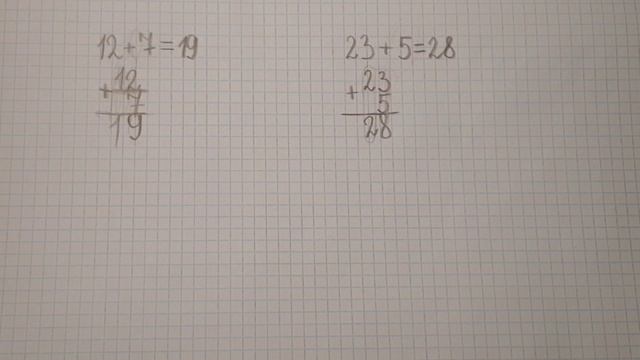 12+7=19
+12
7
19
23+5=28
+23
5
28